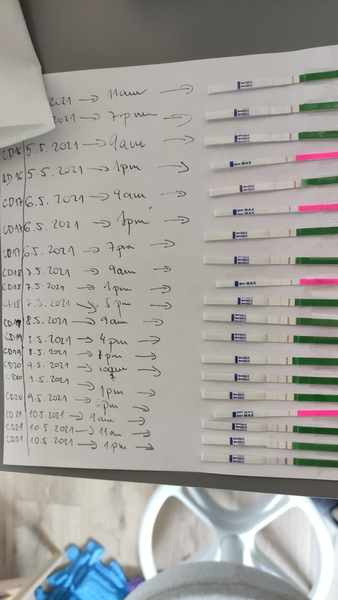 2021 → 11am →
2021 → 7pm →
CD16 5.5.2021 → 9am →
CD16 5.5.2021 → 1pm →
CD17 6.5.2021 → 9am →
CD17 6.5.2021 → 1pm →
CD17 6.5.2021 → 7pm →
CD18 7.5.2021 → 9am →
CD18 7.5.2021 → 1pm →
CD18 7.5.2021 → 5pm →
CD19 8.5.2021 → 9am →
CD19 8.5.2021 → 4pm →
CD19 8.5.2021 → 7pm →
CD20 9.5.2021 →
CD20 9.5.2021 → 1pm →
CD20 9.5.2021 → pm →
CD21 10.5.2021 → 9am →
CD21 10.5.2021 → 11am →
CD21 10.5.2021 → 1pm →
MAX
MAX
MAX